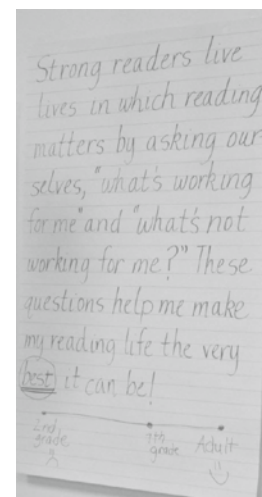 Strong readers live
lives in which reading
matters by asking our
selves, "what's working
for me" and "what's not
working for me?" These
questions help me make
my reading life the very
best it can be!
2nd grade
7th grade
Adult